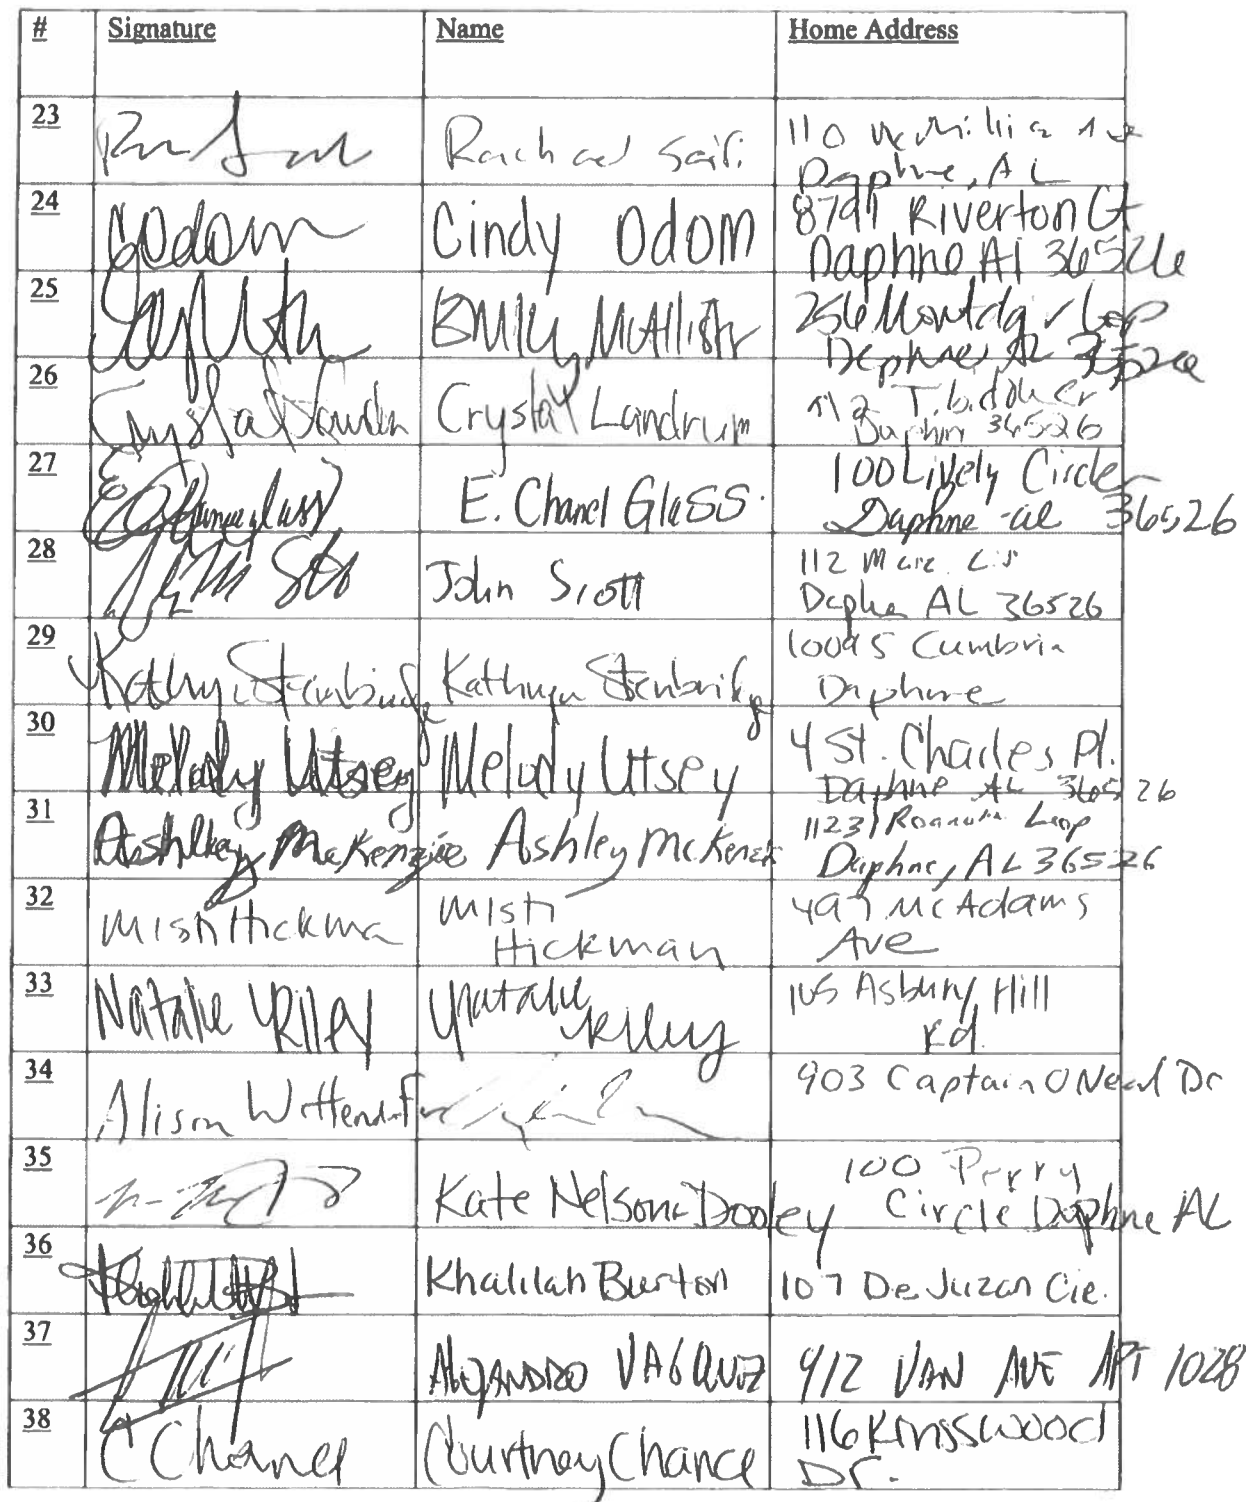 # Signature Name Home Address
23 Rachael Saifi 110
Daphne, AL
24 COdom Cindy Odom 8797 Riverton Ct
Daphne Al 36526
25 Emily McAllister 256 Loop
Daphne AL 36526
26 Crystal Landrum Crystal Landrum 112
Daphne 36526
27 E. Chanel Glass 100 Lively Circle
Daphne al 36526
28 John Scott 112
Daphne AL 36526
29 Kathryn Stenbridge Kathryn Stenbridge Cumbria
Daphne
30 Melody Utsey Melody Utsey 4 St. Charles Pl.
Daphne AL 36526
31 Ashley McKenzie Ashley McKenzie Loop
Daphne, AL 36526
32 Misti Hickman Misti 497 McAdams
Hickman Ave
33 Natalie Riley Natalie 105 Asbury Hill
Riley Rd.
34 Alison 903 Captain O'Neal Dr
35 Kate Nelson-Dooley 100 Perry
Circle Daphne AL
36 Khalilah Burton 107 De Juzan Cie.
37 Alejandro VASQUEZ 912 VAN AVE APT 1028
38 C Chance Courtney Chance 116 Kingswood
Dr.